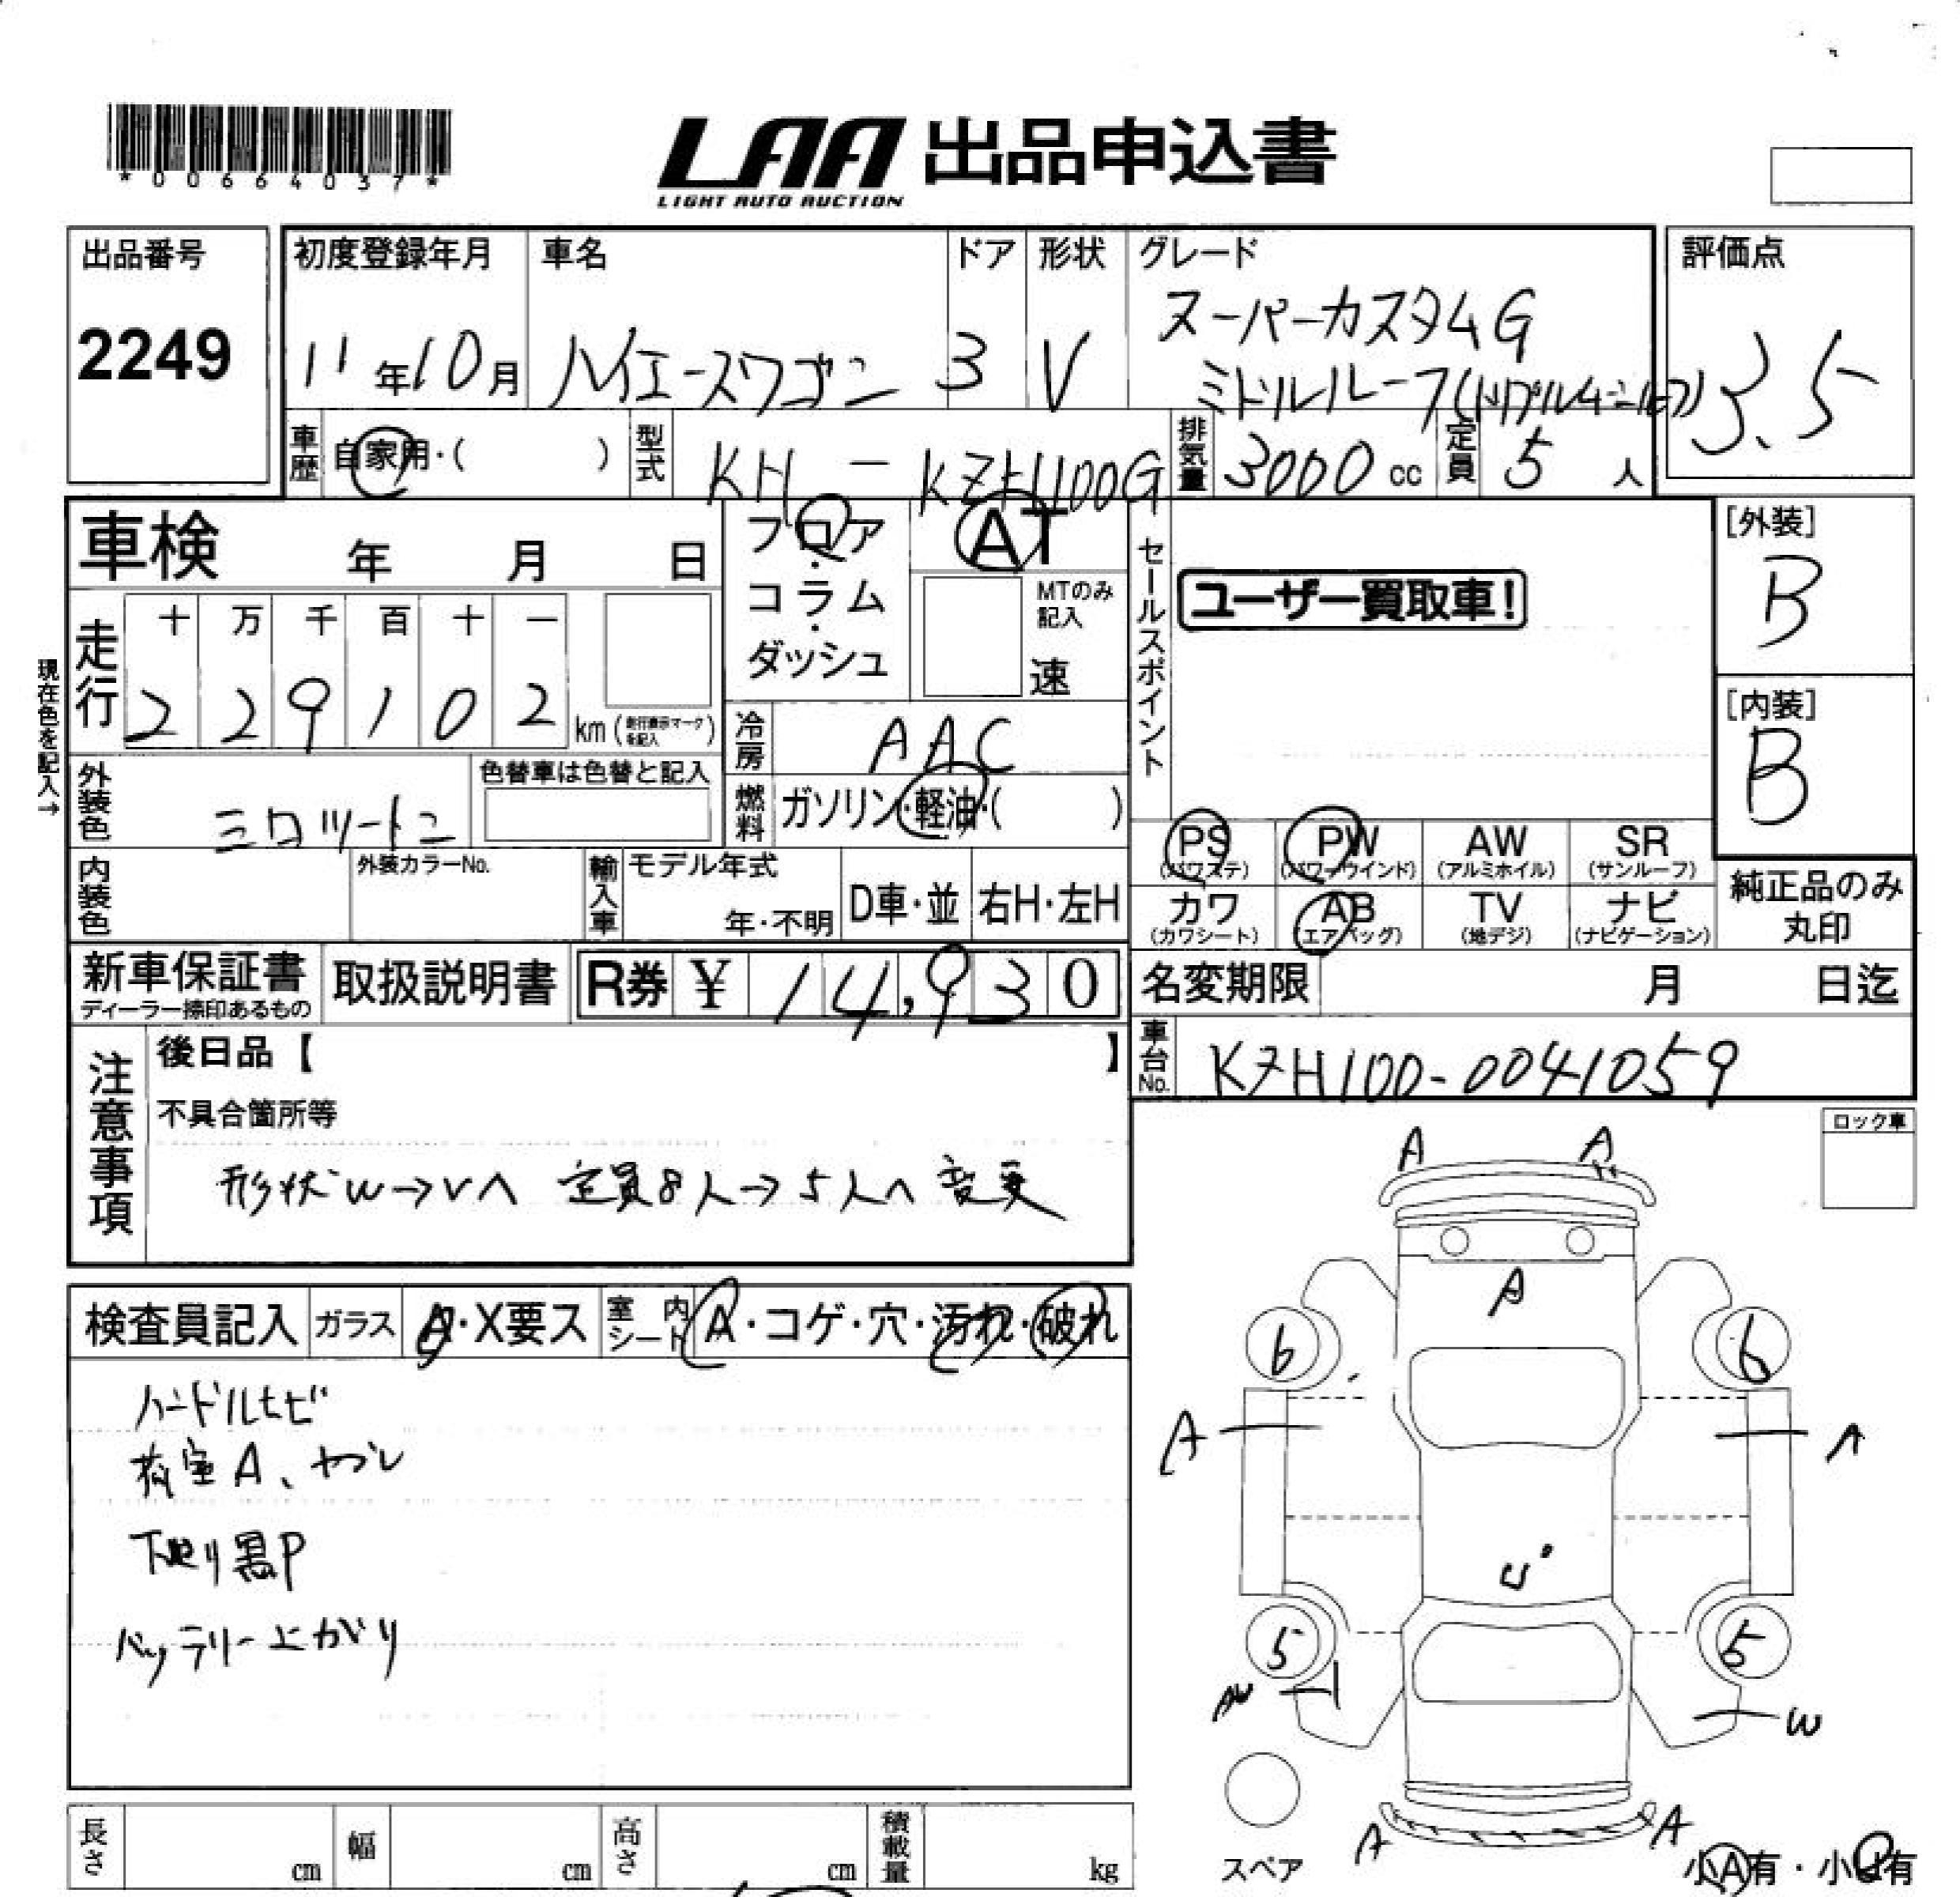 *00664037*
LAA 出品申込書
LIGHT AUTO AUCTION
出品番号
2249
初度登録年月
11年10月
車名
ハイエースワゴン
ドア
3
形状
V
グレード
スーパーカスタムG
ミドルルーフ
評価点
3.5
車歴
自家用・( )
型式
KH - KZH100G
排気量
3000 cc
定員
5 人
車検 年 月 日
フロア・
コラム・
ダッシュ
AT
MTのみ
記入
速
セールスポイント
ユーザー買取車!
[外装]
B
[内装]
B
現在色を記入→
走行
十 万 千 百 十 一
2 2 9 1 0 2 km (走行表示マークを記入)
冷房
AAC
外装色
色替車は色替と記入
燃料
ガソリン・軽油・( )
PS
(パワステ)
PW
(パワーウインド)
AW
(アルミホイル)
SR
(サンルーフ)
内装色
外装カラーNo.
輸入車
モデル年式
年・不明
D車・並
右H・左H
カワ
(カワシート)
AB
(エアバッグ)
TV
(地デジ)
ナビ
(ナビゲーション)
純正品のみ
丸印
新車保証書
ディーラー捺印あるもの
取扱説明書
R券 ¥ 14,930
名変期限 月 日迄
注意事項
後日品【 】
車台No.
KZH100-0041059
不具合箇所等
形状W→Vへ 定員8人→5人へ 変更
ロック車
A A
A
検査員記入
ガラス
A・X要ス
室内シート
A・コゲ・穴・汚れ・破れ
6 6
ハンドルヒビ
A A
荷室A、ヤブレ
下廻り黒P
U
バッテリー上がり
5 5
AW W
スペア
A A
小A有・小U有
長さ cm
幅 cm
高さ cm
積載量 kg